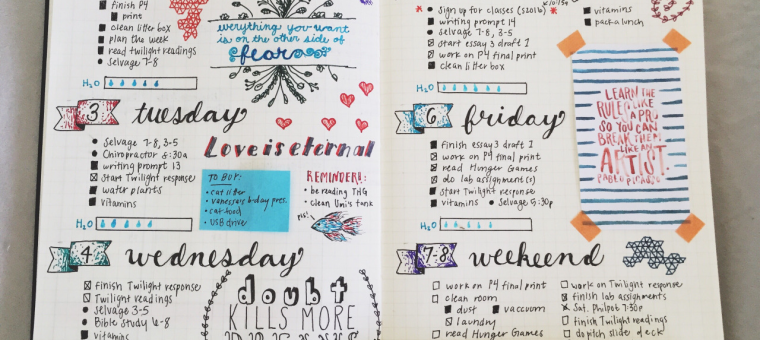 finish P4
print
clean litter box
plan the week
read Twilight readings
Selvage 7-8
everything you want
is on the other side of
fear
H2O
3 tuesday
Selvage 7-8, 3-5
Chiropractor 8:30a
writing prompt 13
Start Twilight response
water plants
vitamins
Love is eternal
TO BUY:
cat litter
vanessa's b-day pres.
cat food
USB drive
REMINDERS:
be reading THG
clean Uni's tank
H2O
4 wednesday
finish Twilight response
Twilight readings
Selvage 3-5
Bible Study 6-8
vitamins
doubt
KILLS MORE
Sign up for classes (520lb)
writing prompt 14
selvage 7-8, 3-5
start essay 3 draft 1
work on P4 final print
clean litter box
vitamins
pack a lunch
H2O
6 friday
finish essay 3 draft 1
work on P4 final print
read Hunger Games
do lab assignment(s)
Start Twilight response
vitamins
Selvage 5:30p
LEARN THE
RULES LIKE
A PRO
SO YOU CAN
BREAK THEM
LIKE AN
ARTIST.
PABLO PICASSO
H2O
7-8 weekend
work on P4 final print
clean room
dust
vaccum
laundry
read Hunger Games
work on Twilight response
finish lab assignments
Sat. Philpot 7:30p
finish Twilight readings
do pitch slide deck